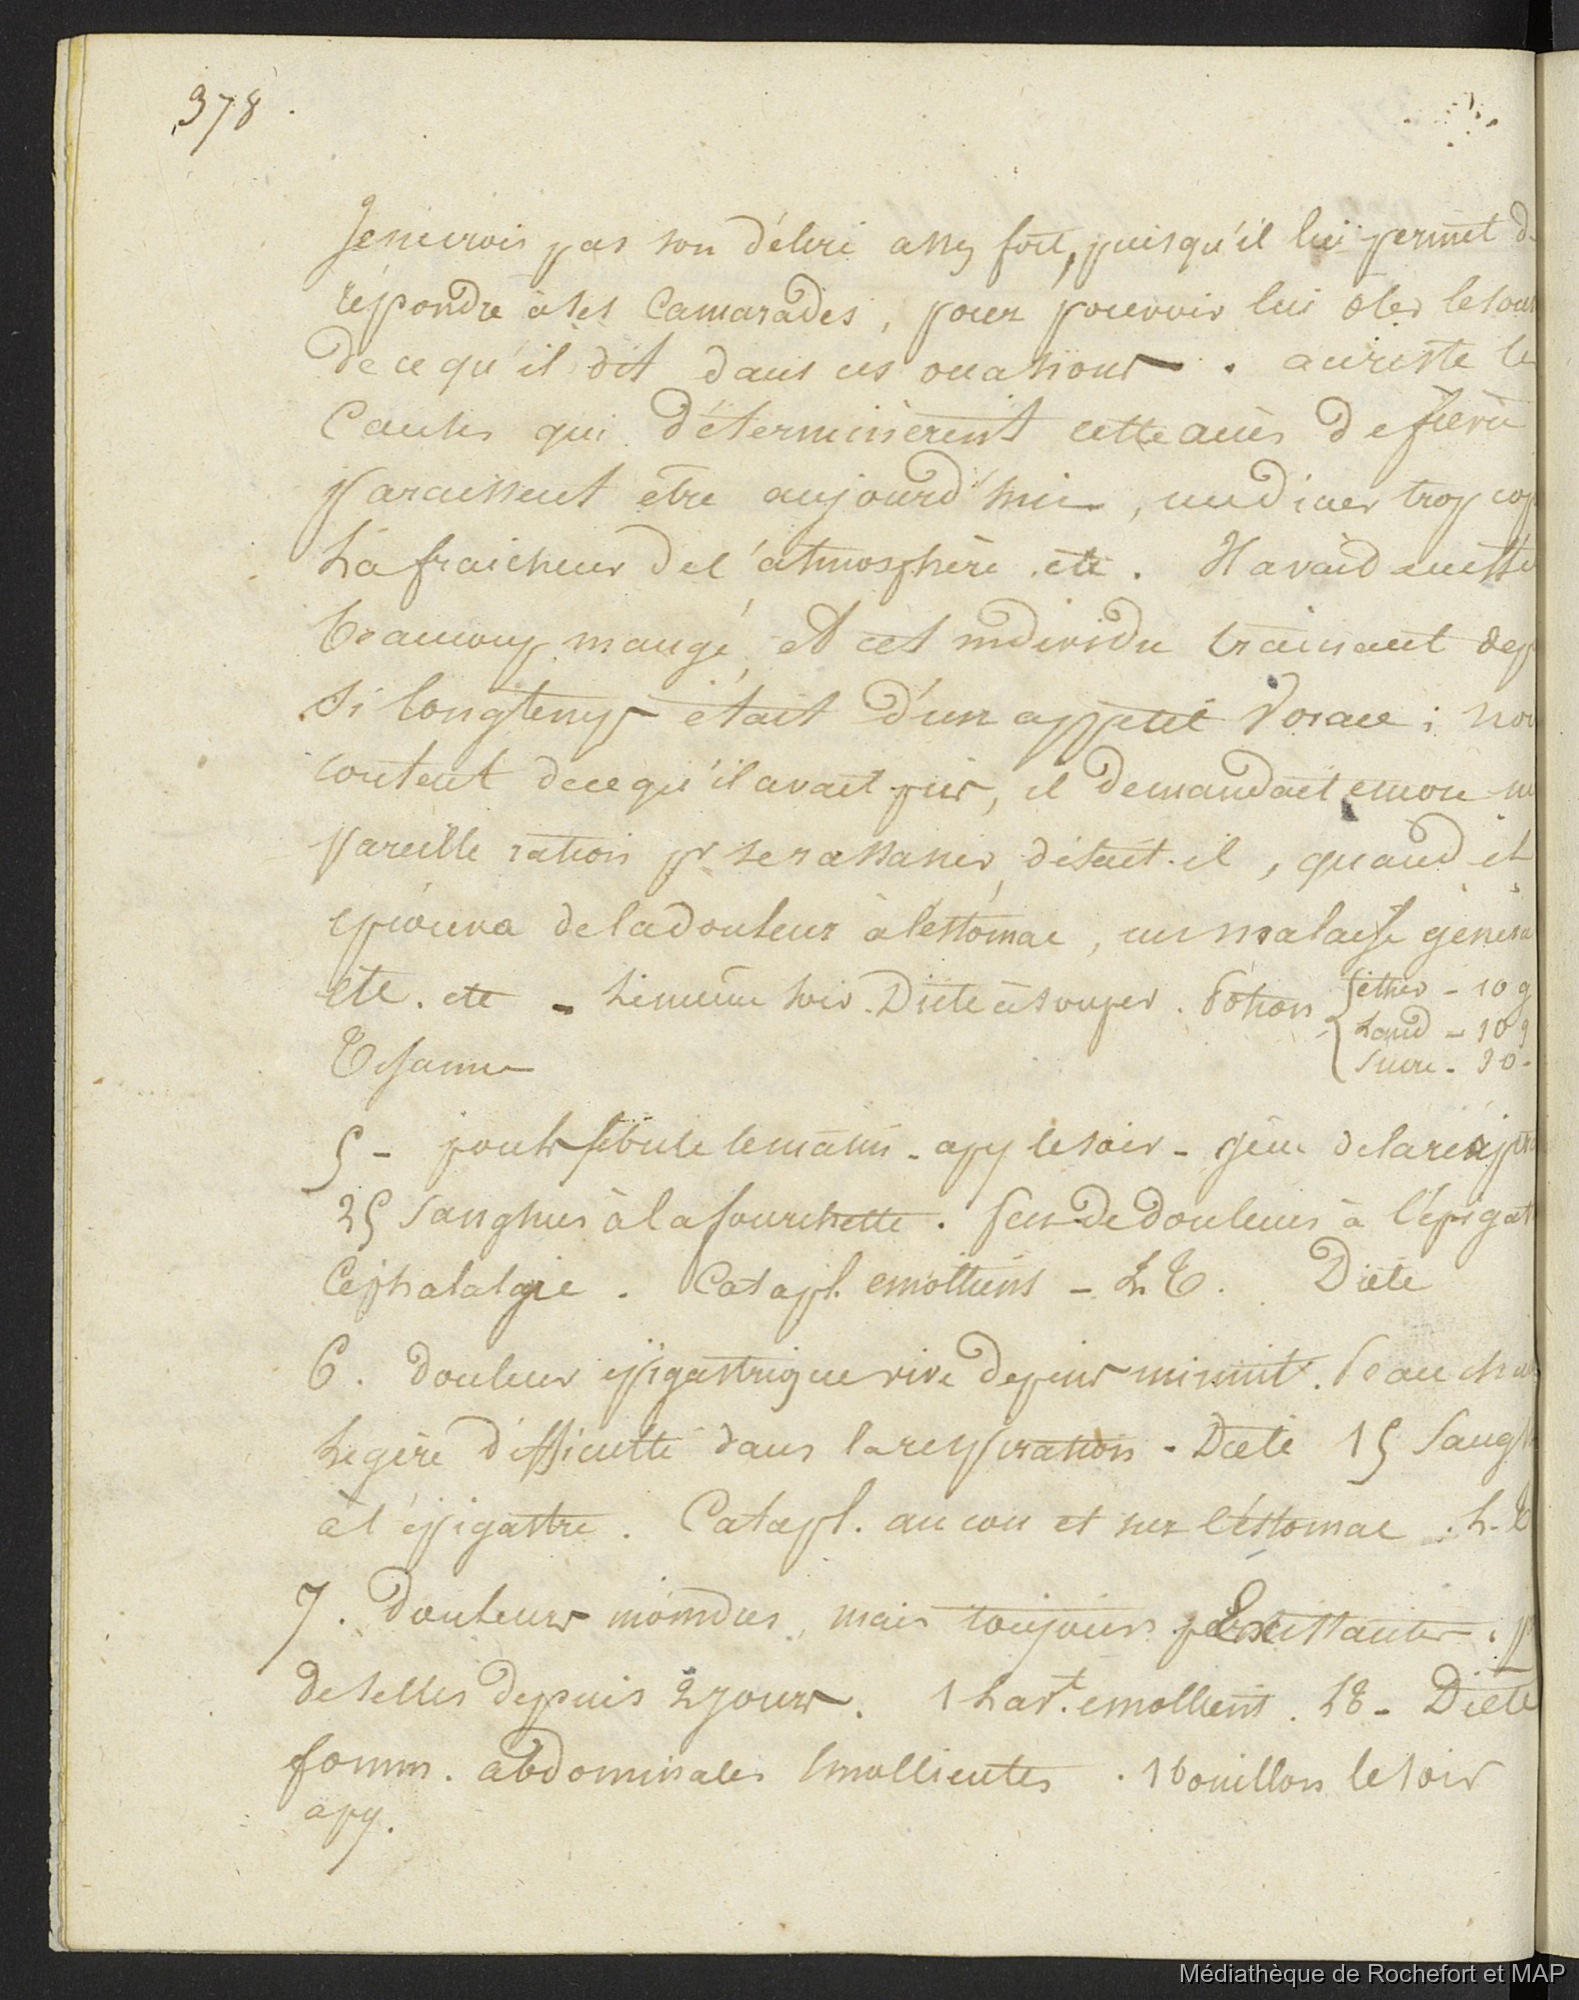 378.
Je ne crois pas son délire assez fort, puisqu'il lui permet d
répondre à ses Camarades, pour pouvoir lui ôter le sou
de ce qu'il dit dans ces occasions. au reste le
Causes qui déterminèrent cette accès de fièvre
paraissent être aujourd'hui, un diner trop cop
La fraicheur de l'atmosphère etc. Il avait
Beaucoup mangé, et cet individu trainant dep
si longtemps était d'un appetit Vorace; non
content de ce qu'il avait pris, il demandait encore un
pareille ration pr se rassasier, disait-il, quand il
éprouva de la douleur à l'estomac, un malaise généra
etc. etc - Le même soir. Diète à souper. Potion { éther - 10 g
Laud - 10 g
Sucre - 30 -
Tisanne
5 - pouls fébrile le matin - apy le soir - gêne de la respir
25 Sangsues à la fourchette. peu de douleurs à l'épigat
Cephalalgie. Catapl. emollients - L T. Diète
6. Douleur epigastrique vive depuis minuit. Peau chau
Legère difficulté dans la respiration - Diète 15 Sangs
à l'épigastre. Catapl. au cou et sur l'éstomac. L. T
7. Douleurs moindres, mais toujours persistantes. p
de selles depuis 2 jours. 1 Lavt. emollient. L8 - Diète
fomm. abdominales émollientes. 1 bouillon le soir
apy.
Médiathèque de Rochefort et MAP